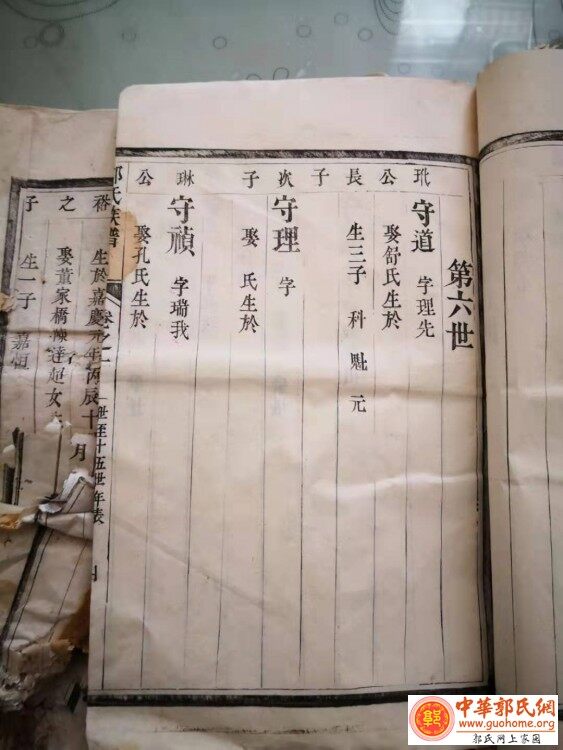 第六世
公長子
守道 字理先
娶舒氏生於
生三子 科 魁 元
次子
守理 字
娶 氏生於
琳公
守禎 字瑞我
娶孔氏生於
氏族譜
卷之
世至十五世年表
之子
生於嘉慶元年丙辰十月
娶董家橋陳達超女
生一子 嘉恒
中華郭氏網
www.guohome.org
郭氏网上家园